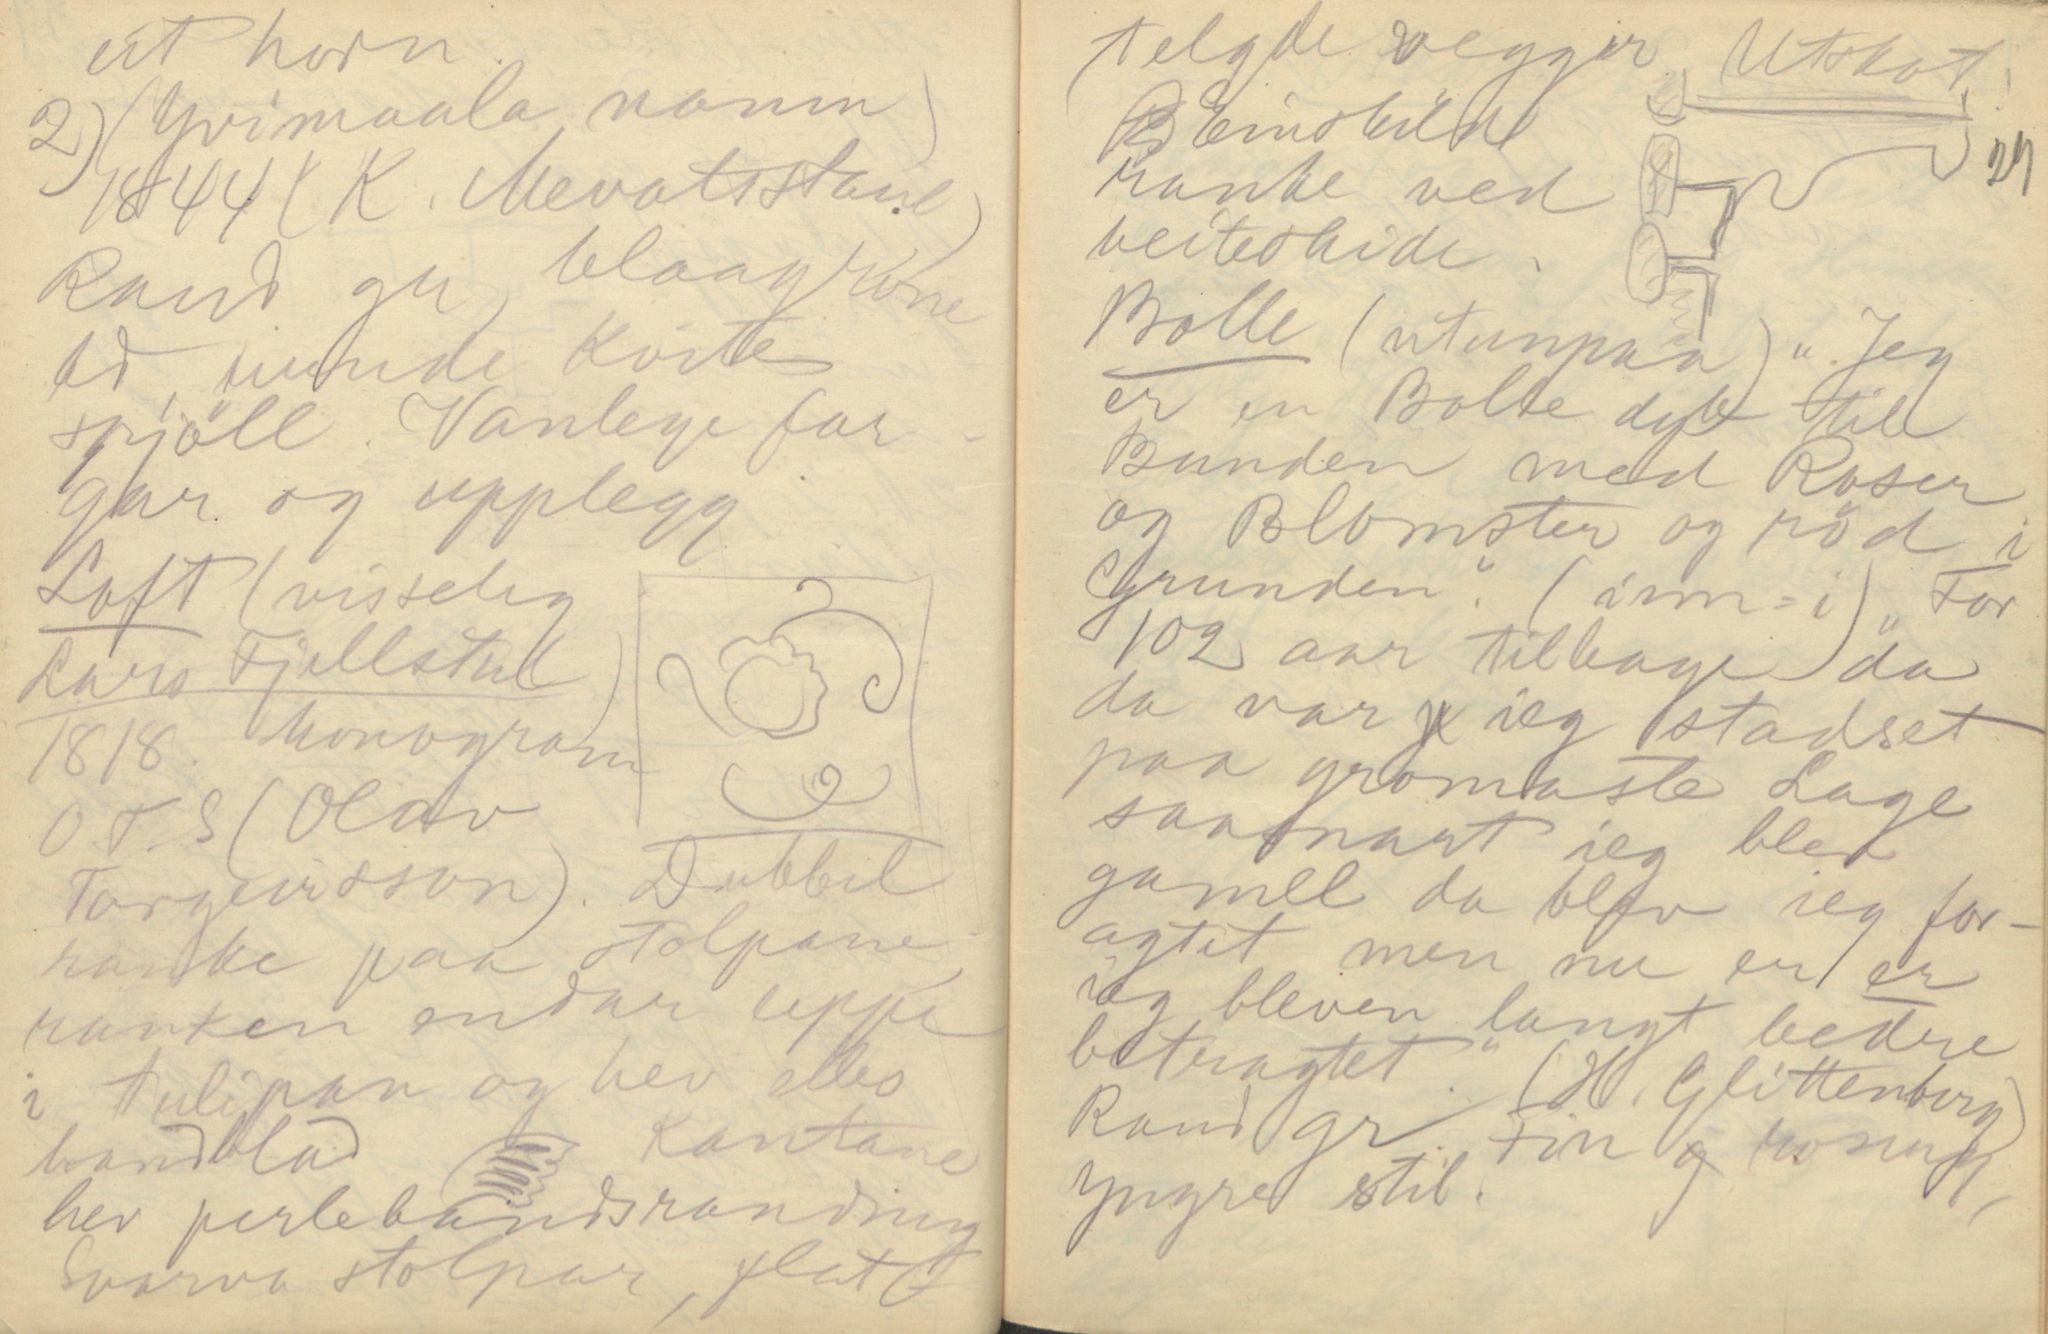 eit horn.
2) (Yvimaala, namn)
1844 (K. Mevatsstaul)
Rand gr, blaagrøne
bd, runde kvite
spjöll. Vanlege far-
gar og upplegg
Loft (visseleg
Lars Fjellstul)
1818. Monogram
O.T.S (Olav
Torgeirsson). Dubbel
ranke paa stolpane,
ranken endar uppe
i tulipan og hev elles
bandblad Kantane
hev perlebandsranding
Svarva stolpar, flatt
telgde vegger. Utskot.
27
Beinskild
ranke ved
beiteskidi.
Bolle (utanpaa) "Jeg
er en Bolle dyb till
Bunden med Roser
og Blomster og röd i
Grunden". (inn-i) "For
102 aar tilbage da
da var jeg stadset
paa gromaste Lage
saasnart ieg blev
gamell da blev ieg for-
agtet men nu er er
ieg bleven langt bedre
betragtet". (H. Glittenberg)
Rand gr. Fin og
yngre stil.